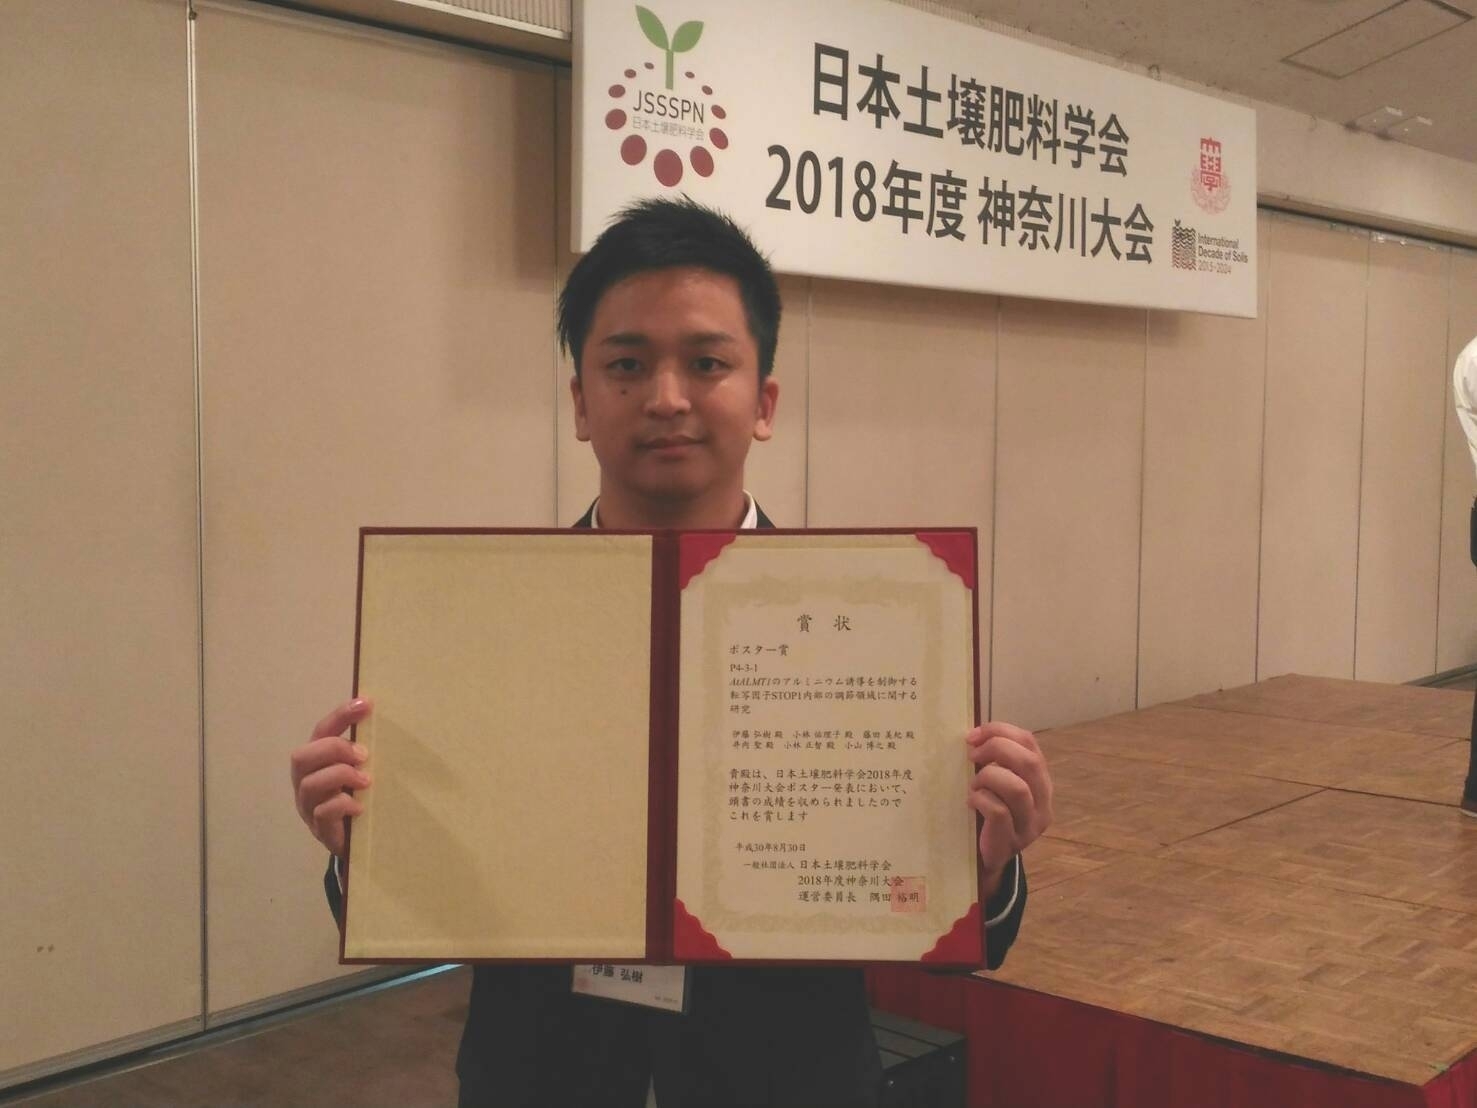 JSSSPN
日本土壌肥料学会
日本土壌肥料学会
2018年度 神奈川大会
大學
International
Decade of Soils
2015-2024
賞 状
ポスター賞
P4-3-1
AtALMT1のアルミニウム誘導を制御する
転写因子STOP1内部の調節領域に関する
研究
伊藤 弘樹 殿 小林 佑理子 殿 藤田 美紀 殿
井内 聖 殿 小林 正智 殿 小山 博之 殿
貴殿は、日本土壌肥料学会2018年度
神奈川大会ポスター発表において、
頭書の成績を収められましたので
これを賞します
平成30年8月30日
一般社団法人 日本土壌肥料学会
2018年度神奈川大会
運営委員長 隅田 裕明
伊藤 弘樹